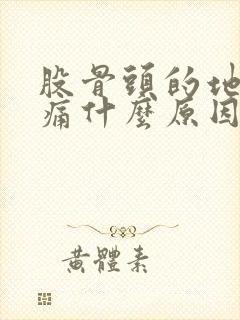 股骨頭的地
痛什麼原因
黃體素